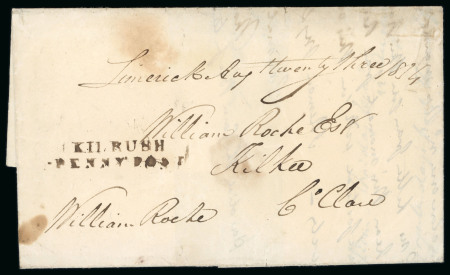 Limerick Augt twenty three 1834
William Roche Esqr
KILRUSH
PENNY POST
Kilkee
William Roche
Co Clare